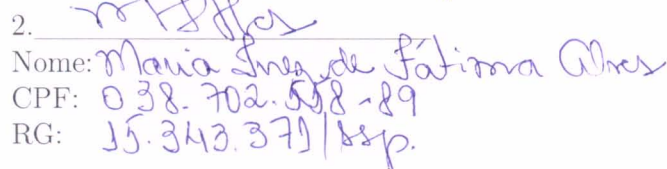 2.
Nome: Maria Inez de Fátima Alves
CPF: 038.702.558-89
RG: 15.343.371/ssp.